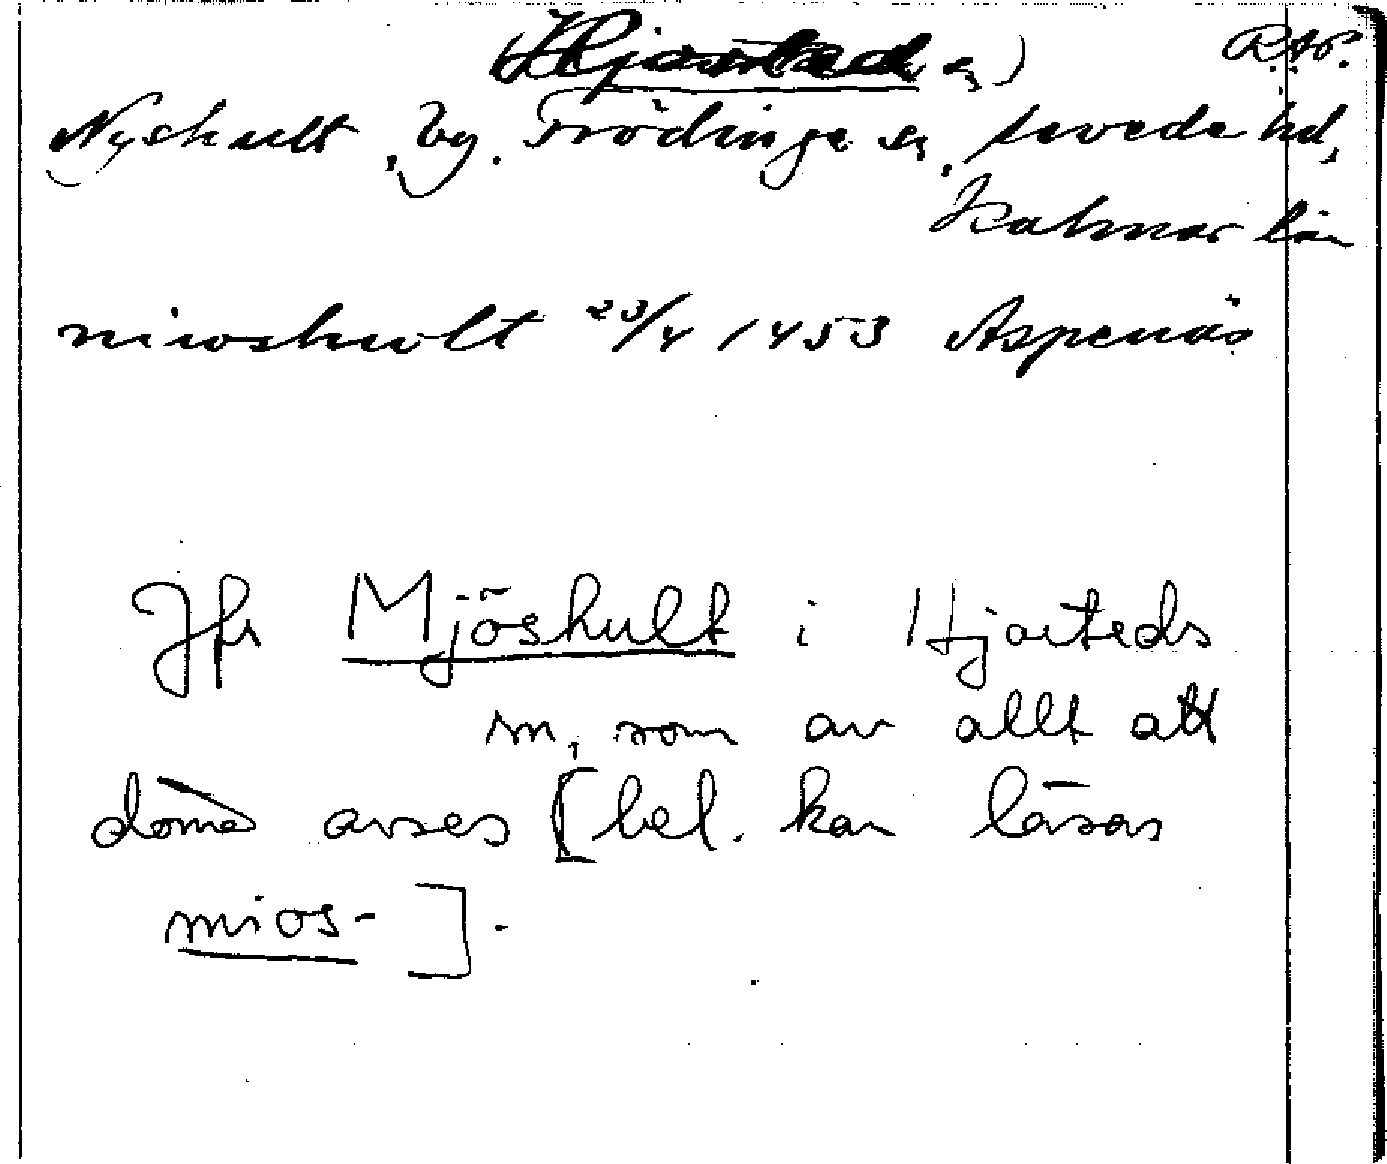 (Hjorted sn) R.A.P.
Nyshult, by. Frödinge sn, Sevede hd,
Kalmar län
niwshwlt 23/4 1453 Aspenäs
Jfr Mjöshult i Hjorteds
sn, som av allt att
döma avses [bel. kan läsas
mios-].